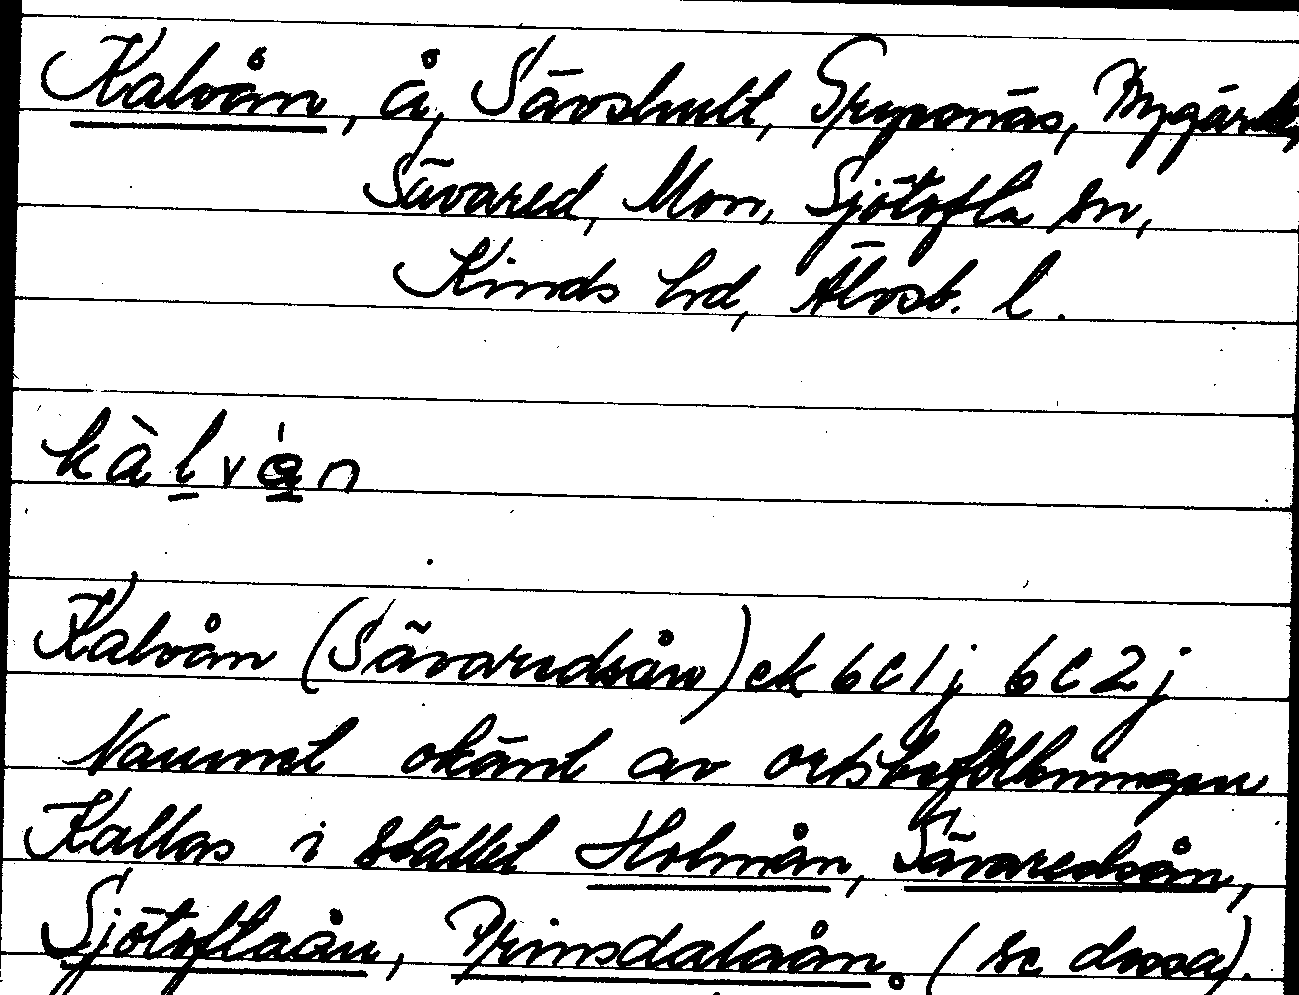 Kalvån, å, Sävshult, Grytnäs, Nygärde,
Sävared, Mon, Sjötofta sn,
Kinds hrd, Älvsb. l.
kàlvån
Kalvån (Sävaredsån) ek 6C1j 6C2j
Namnet okänt av ortsbefolkningen
Kallas i stället Holmån, Sävaredsån,
Sjötoftaån, Prinsdalaån. (se dessa).